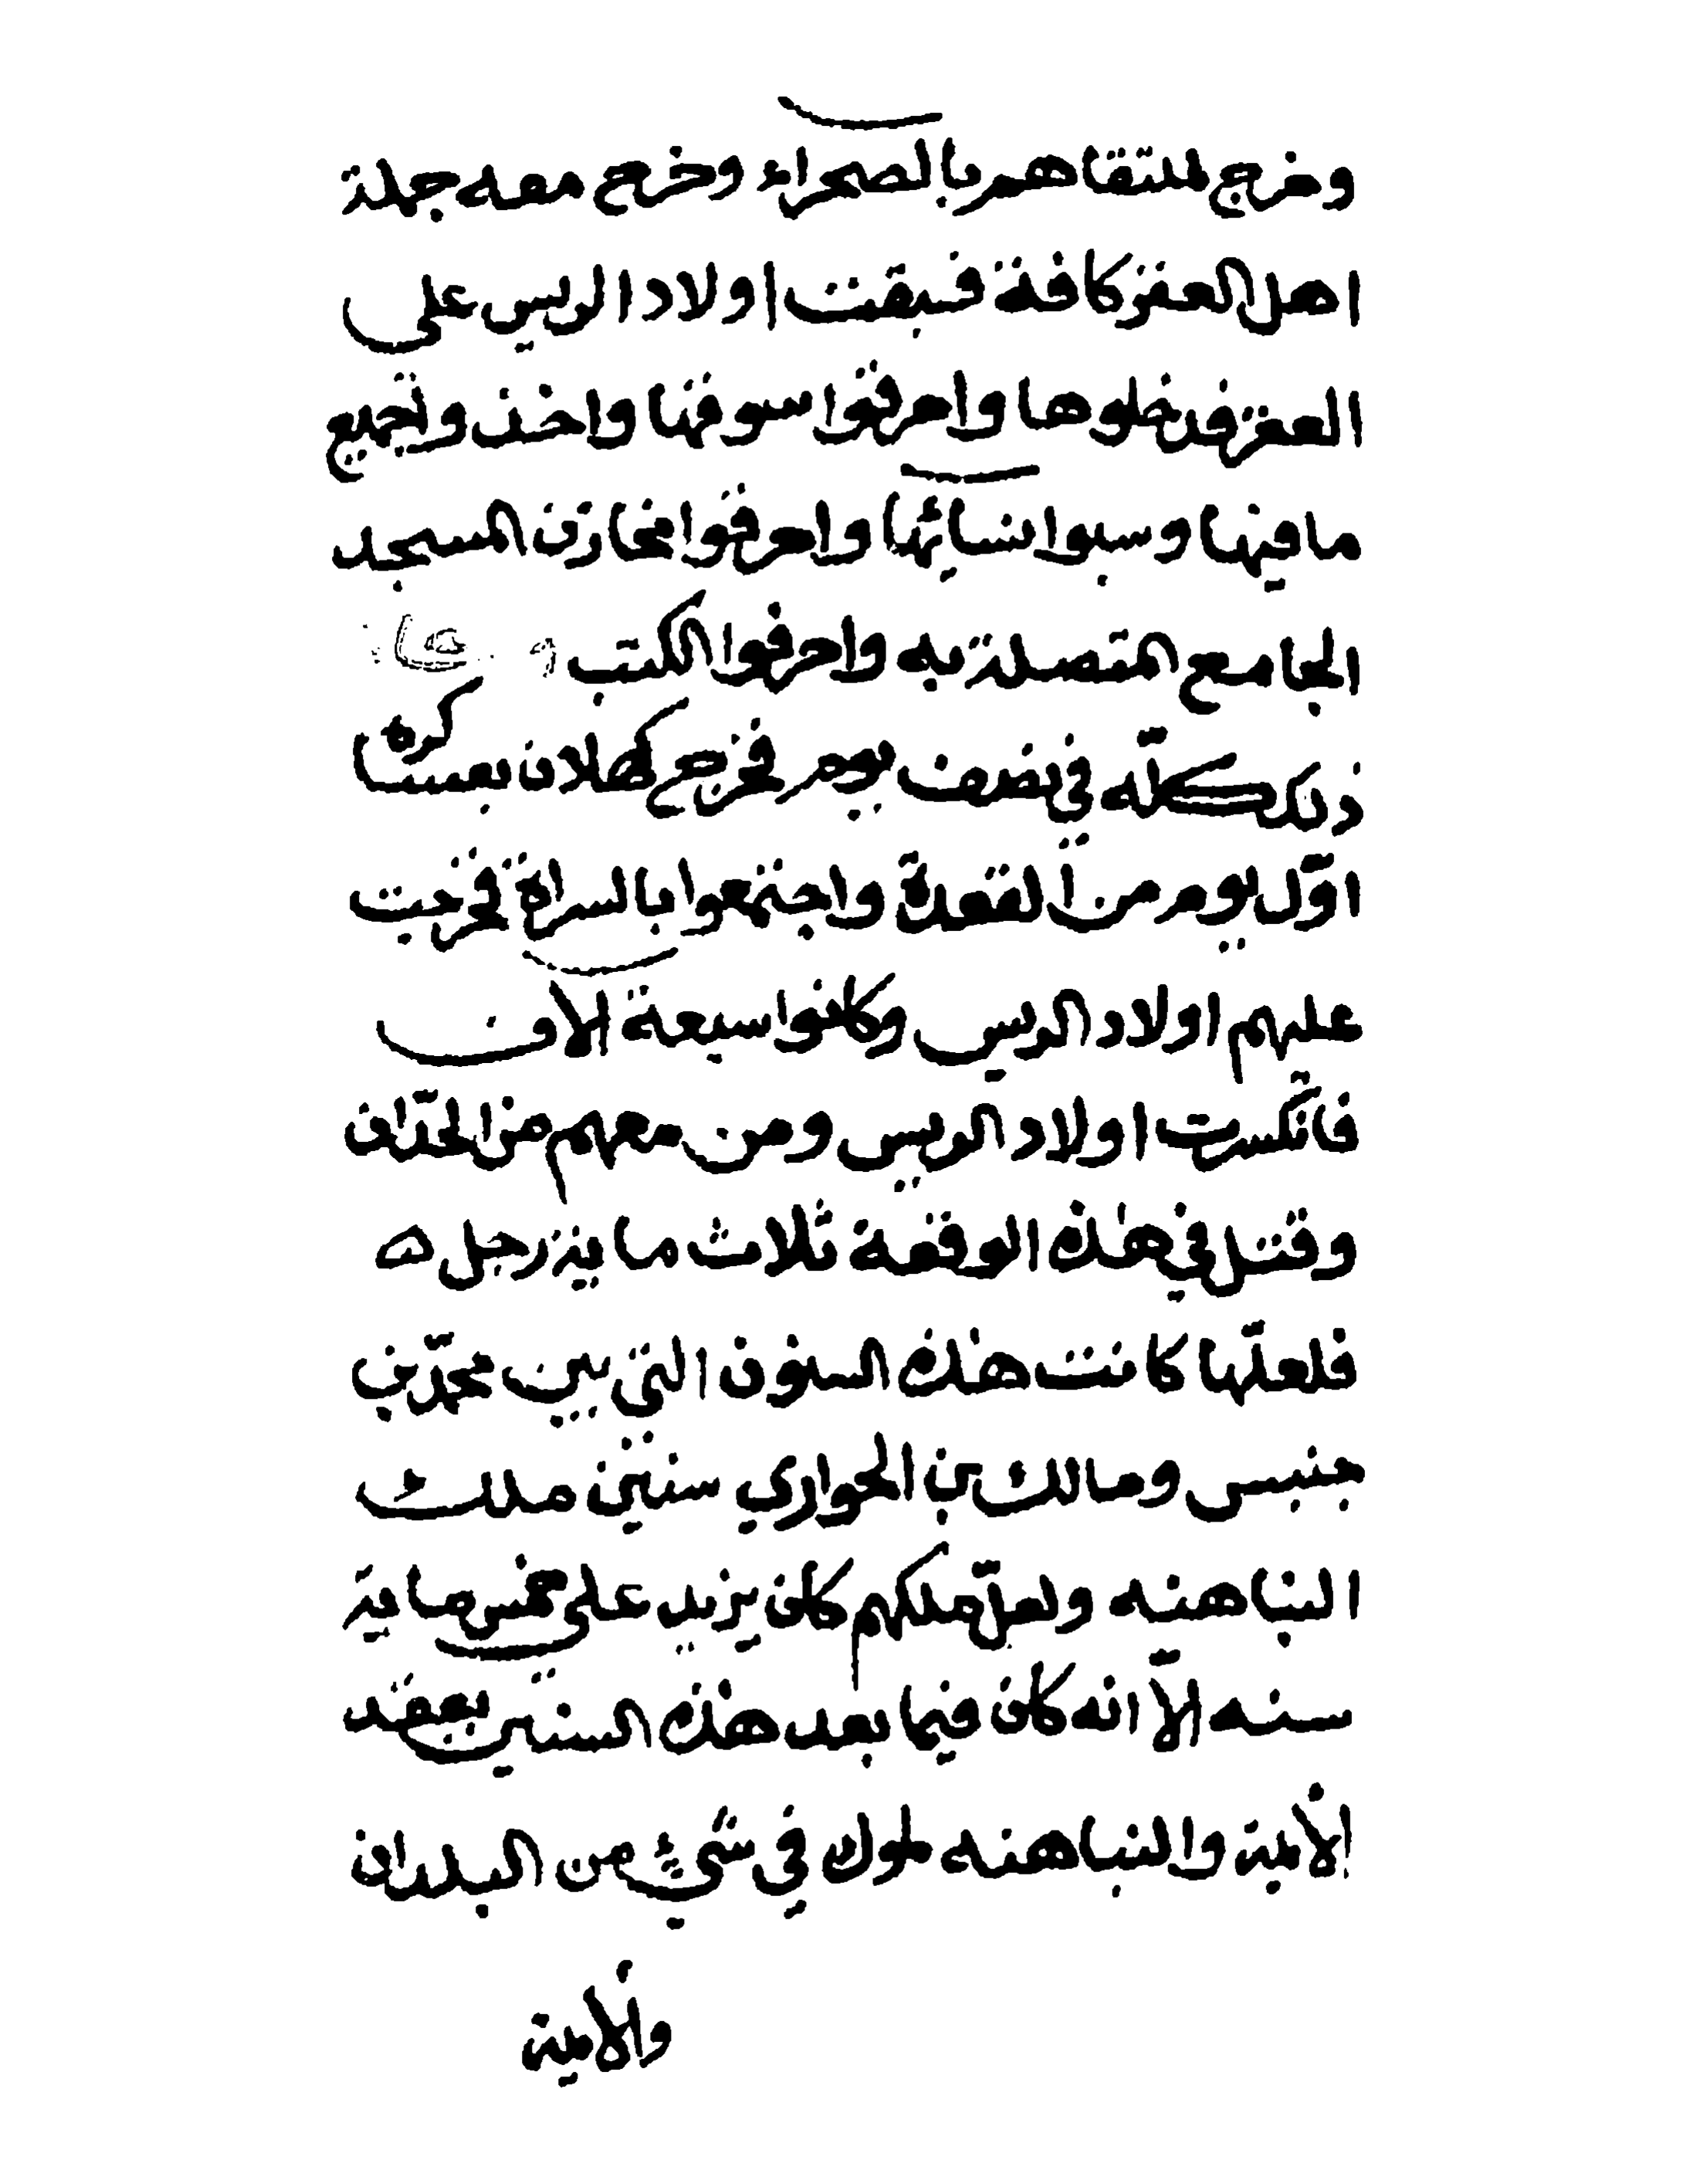 وخرج لملتقاهم بالصحراء وخرج معه جملة
اهل العقر كافة فبقت اولاد الريس على
العقر فدخلوها واحرقوا سوقها واخذوا جميع
ما فيها وسبوا نسائها واحرقوا مخازن المسجد
الجامع المتصلة به واحرقوا الكتب وكان
ذلك كله في نصف يوم فخرج كهلان بعساكره
اوّل يوم من القعدة واجتمعوا بالسراة فخرجت
عليهم اولاد الريس وكانوا سبعة الاف
فانكسرت اولاد الريس ومن معهم من الحدّان
وقتل في هذه الوقعة ثلاث ماية رجل ه
فلعلّها كانت هذه السنون التي بين محمّد بن
خنبس ومالك بن الحواري سنين ملك
النباهنه ولعلّ ملكهم كان يزيد على خمس ماية
سنه الاّ انه كان فيما بعد هذه السنين بعقد
الأيمة والنباهنه ملوك في شيء من البلدان
والأيمة